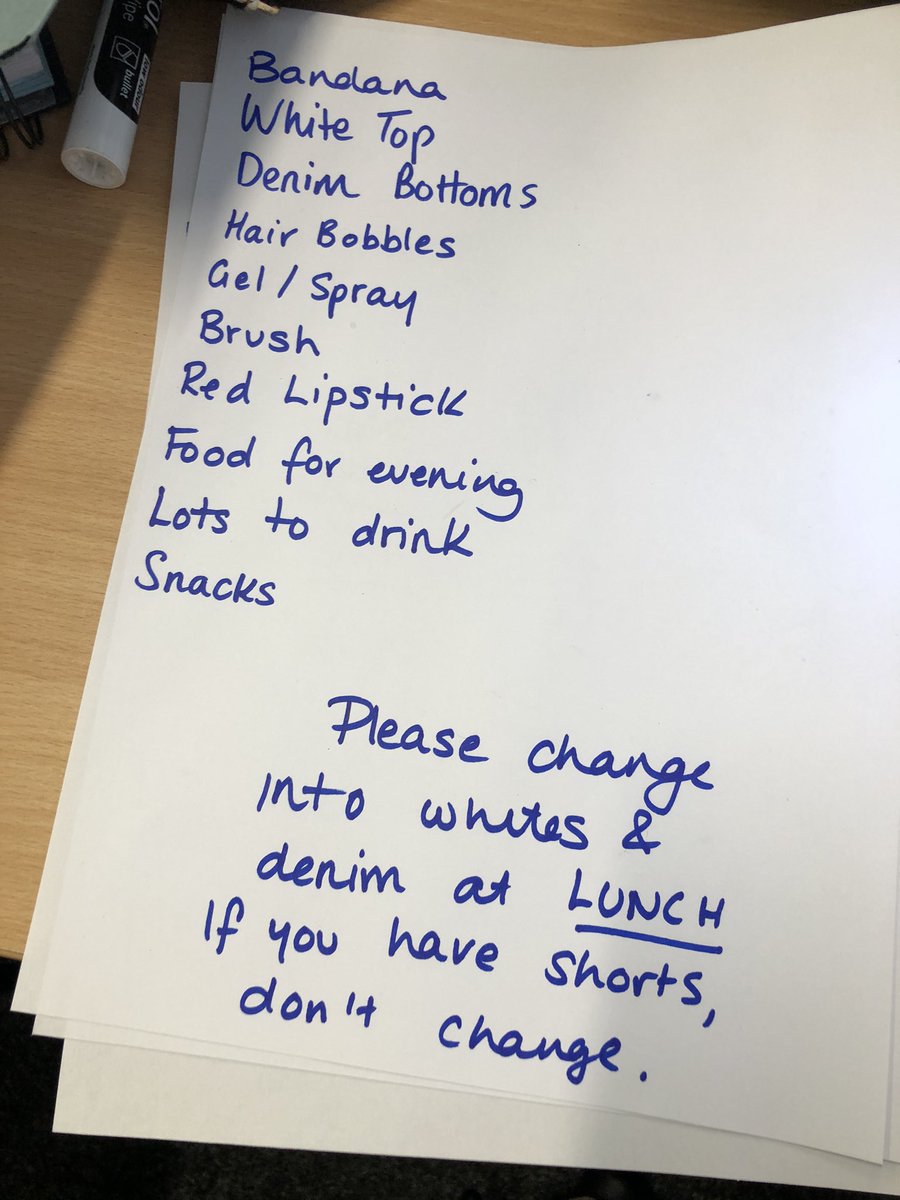 Bandana
White Top
Denim Bottoms
Hair Bobbles
Gel / Spray
Brush
Red Lipstick
Food for evening
Lots to drink
Snacks
Please change
into whites &
denim at LUNCH
If you have shorts,
don't change.
bullet